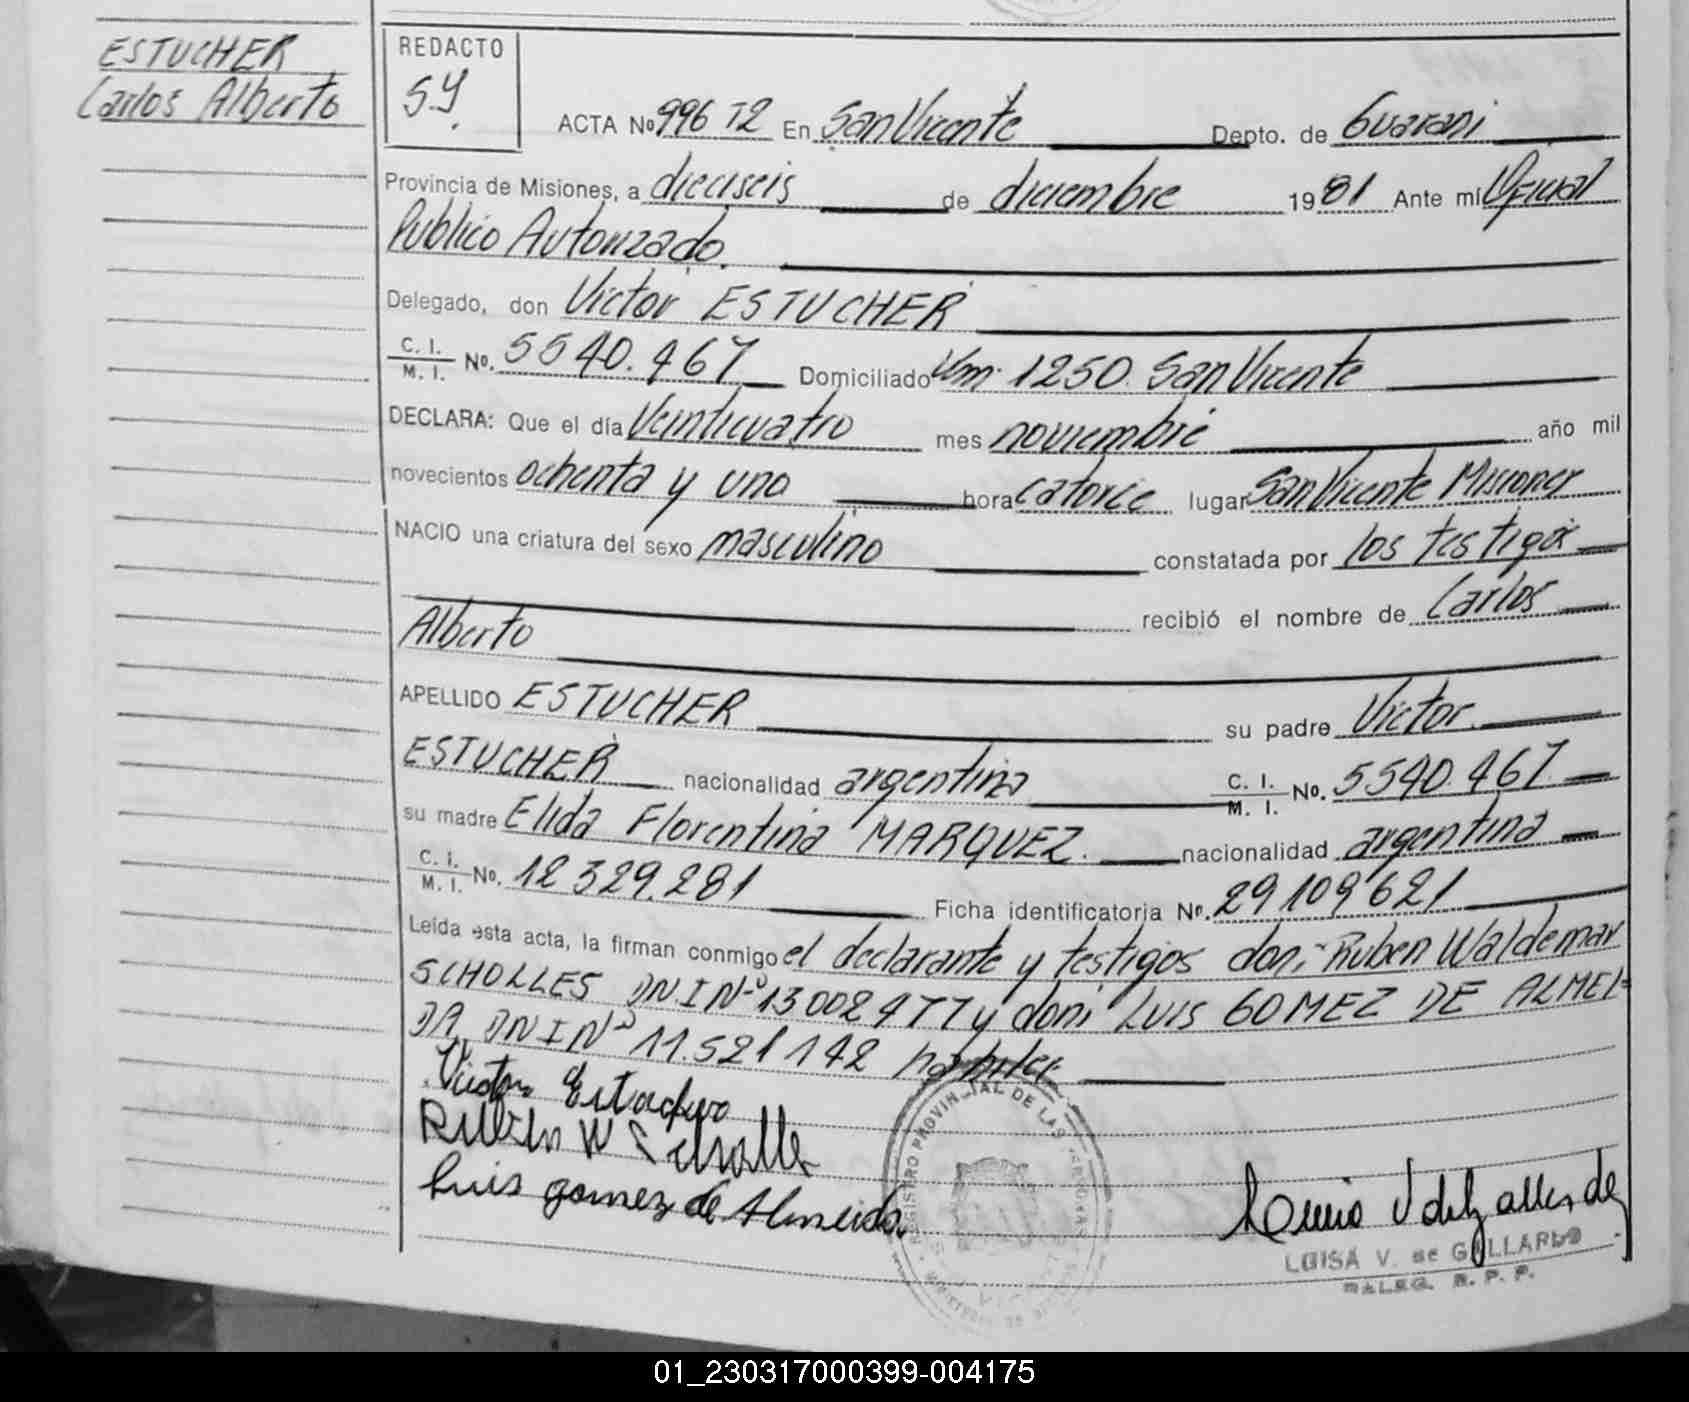 ESTUCHER
Carlos Alberto
REDACTO
S.Y.
ACTA Nº 996 T2 En San Vicente Depto. de Guarani
Provincia de Misiones, a dieciseis de diciembre 1981 Ante mí Oficial
Publico Autorizado.
Delegado, don Victor ESTUCHER
C. I. / M. I. No. 5540.467 Domiciliado Km. 1250. San Vicente
DECLARA: Que el día Veinticuatro mes noviembre año mil
novecientos ochenta y uno hora catorce lugar San Vicente Misiones
NACIO una criatura del sexo masculino constatada por los testigos
recibió el nombre de Carlos
Alberto
APELLIDO ESTUCHER su padre Victor
ESTUCHER nacionalidad argentina C. I. / M. I. No. 5540.467
su madre Elida Florentina MARQUEZ. nacionalidad argentina
C. I. / M. I. No. 12329.281 Ficha identificatoria Nº. 29109621
Leída esta acta, la firman conmigo el declarante y testigos don: Ruben Waldemar
SCHOLLES DNI Nº 13002477 y don: LUIS GOMEZ DE ALMEI-
DA DNI Nº 11.521142 habiles
Ruben W
Luis gomez de Almeida
REGISTRO PROVINCIAL DE LAS PERSONAS
LUISA V. de GALLARDO
DALEG. R. P. P.
01_230317000399-004175